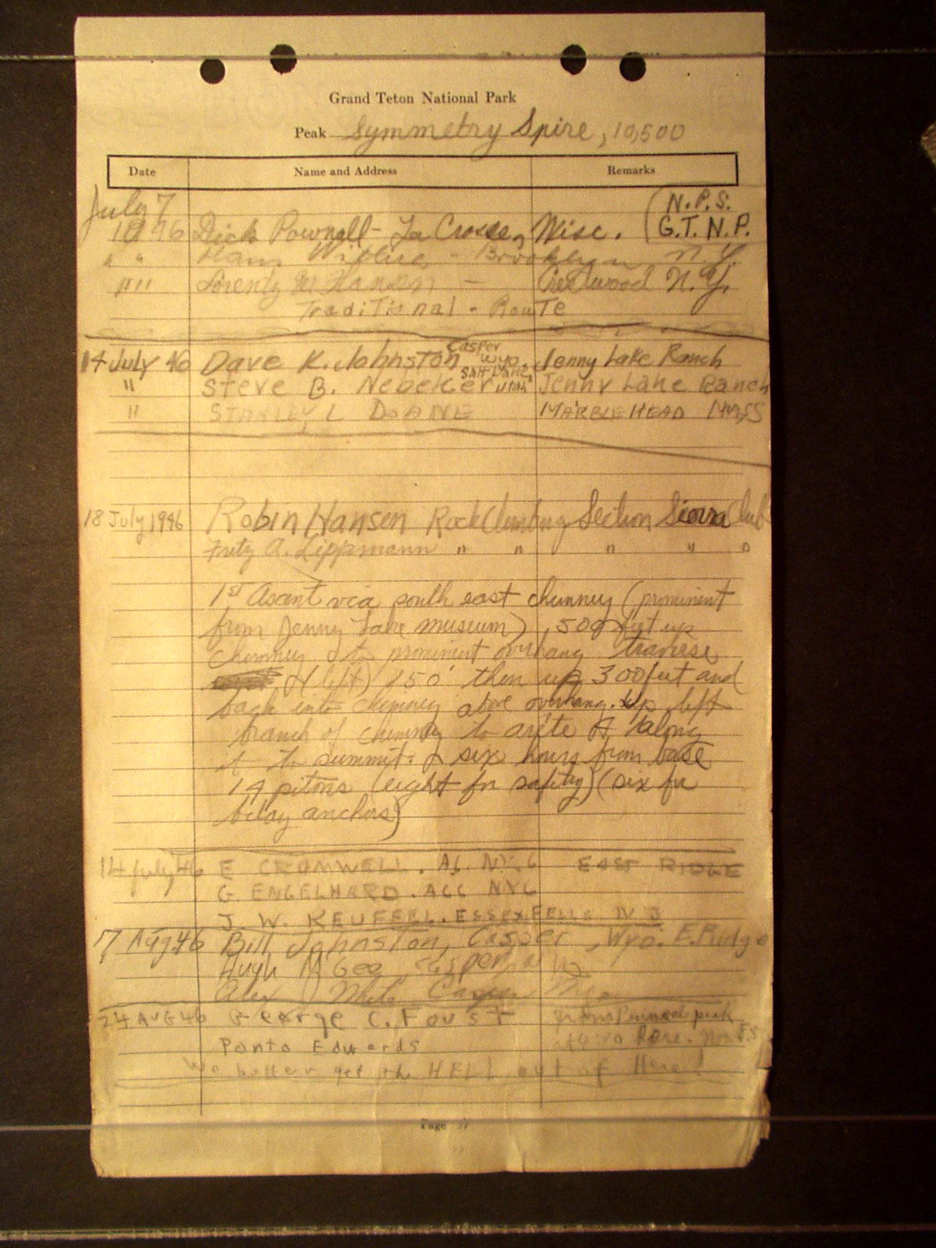 Grand Teton National Park
Peak Symmetry Spire, 10,500
Date Name and Address Remarks
July 7
1946 Dick Pownall - La Crosse, Wisc. (N.P.S. G.T.N.P.
" " - Brooklyn N.Y.
" " Lorentz M. Hansen - N.Y.
Traditional - Route
14 July 46 Dave K. Johnston Casper Wyo. Jenny Lake Ranch
" Steve B. Nebeker Salt Lake, Utah Jenny Lake Ranch
" STANLEY L DOANE MARBLEHEAD MASS
18 July 1946 Robin Hansen Rock Climbing Section Sierra Club
Fritz A. Lippmann " " " " "
1st Ascent via south east chimney (prominent
from Jenny Lake museum), 500 feet up
chimney to prominent overhang traverse
(left) 150' then up 300 feet and
back into chimney above overhang. Up left
branch of chimney to arête & along
it to summit. six hours from base
14 pitons (eight for safety) (six for
belay anchors)
14 July 46 E CROMWELL. A NYC EAST RIDGE
G. ENGELHARD. ACC NYC
J. W. KEUFFEL. ESSEX FELLS N J
17 Aug 46 Bill Johnston, Casper, Wyo. E. Ridge
Hugh McGee, Casper,
Alex
24 AUG 46 George C. Foust from
Ponto Edwards
We better get the HELL out of Here!
Page